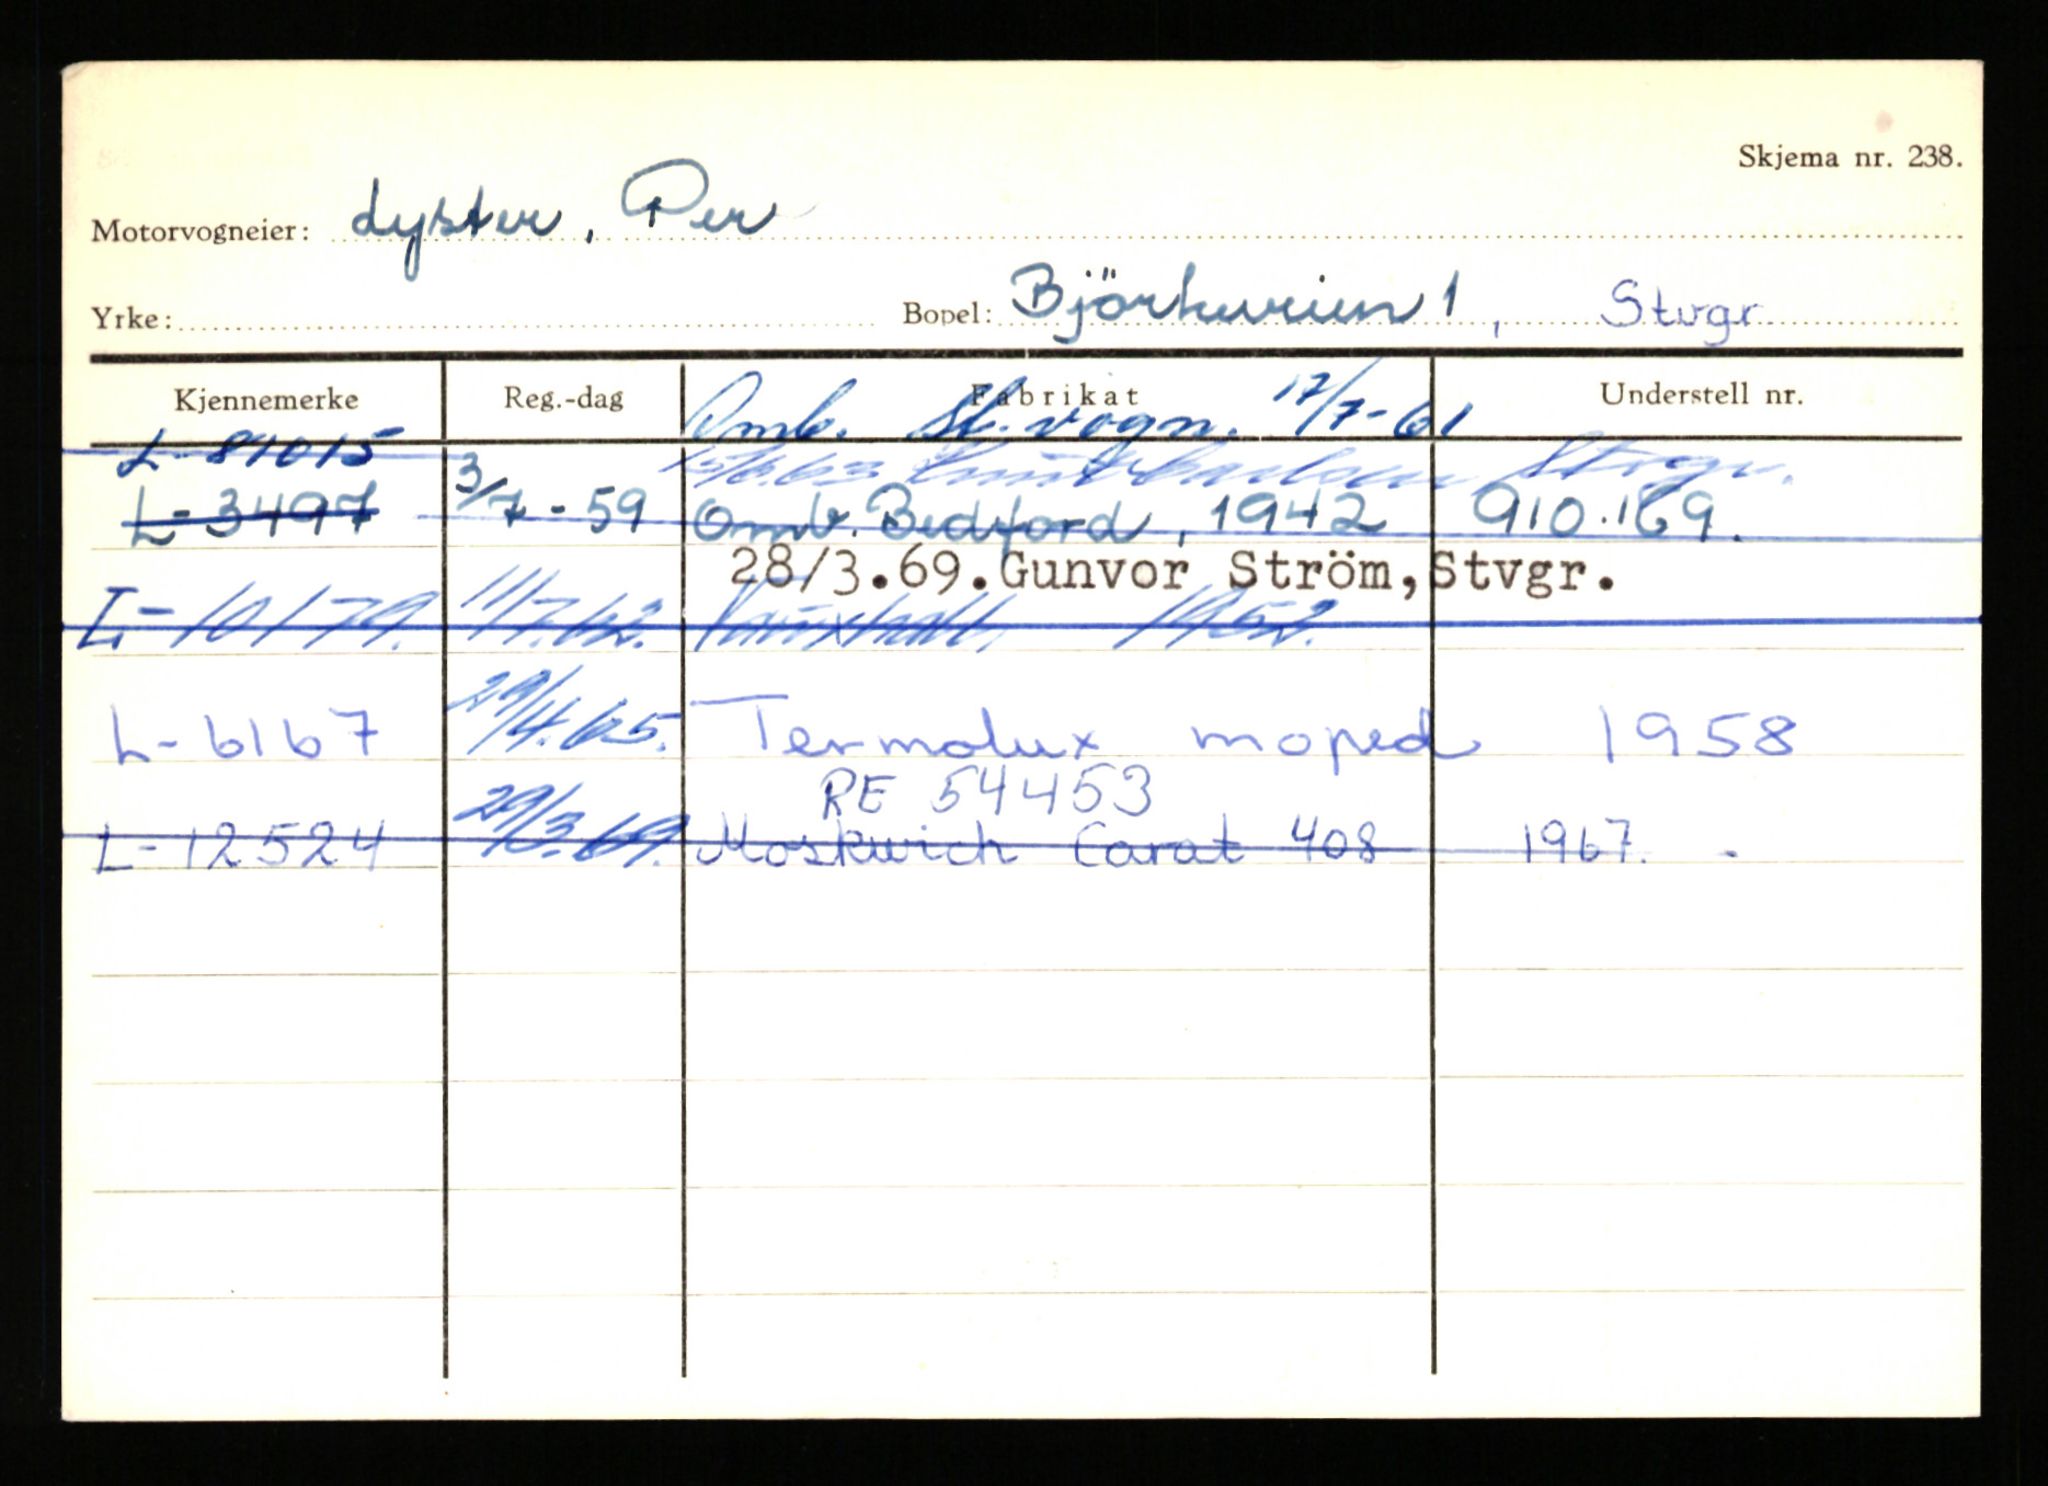 Skjema nr. 238.
Motorvogneier: Lyster, Per
Yrke: Bopel: Björkveien 1, Stvgr
Kjennemerke Reg.-dag Fabrikat Understell nr.
Omb. St. vogn. 17/7-61
L-81015 Stvgr.
L-3497 3/7-59 Omb. Bedford, 1942 910.169.
28/3.69. Gunvor Ström, Stvgr.
L-10179. 11/7.62. Vauxhall, 1952.
L-6167 29/4.65. Termolux moped 1958
RE 54453
L-12524 29/3.69. Moskwich Carat 408 1967.